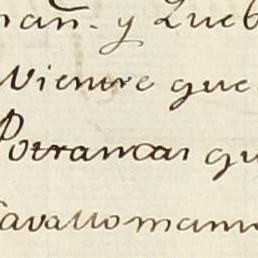 mañ. y Queb
Vientre que
Potrancas qu
Cavallo mans